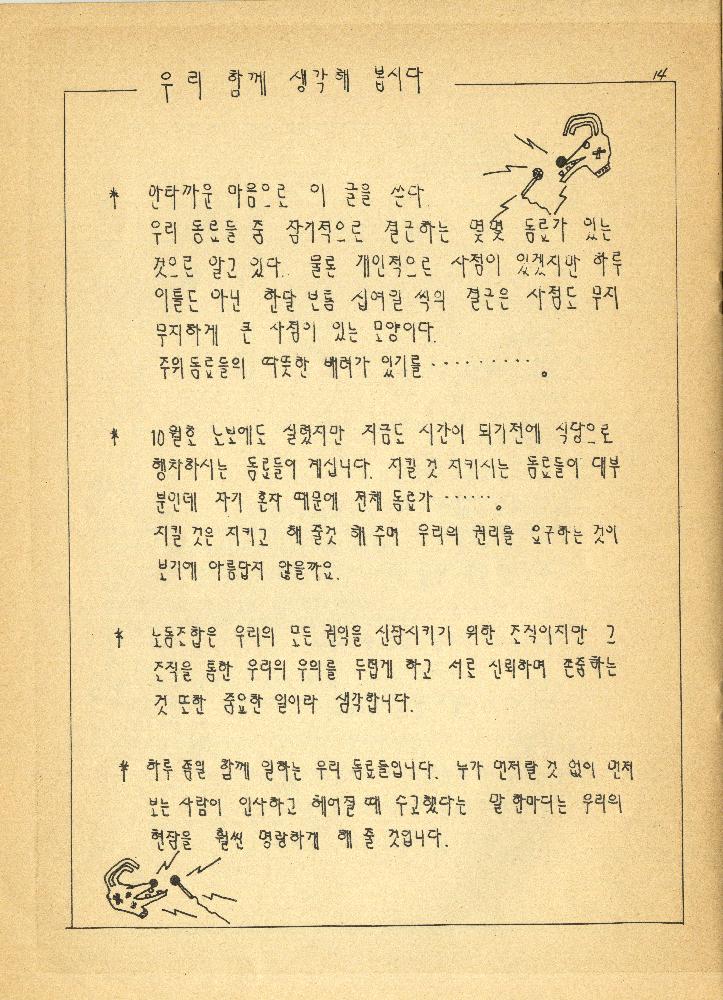 우리 함께 생각해 봅시다
14
* 안타까운 마음으로 이 글을 쓴다.
우리 동료들 중 장기적으로 결근하는 몇몇 동료가 있는
것으로 알고 있다. 물론 개인적으로 사정이 있겠지만 하루
이틀도 아닌 한달 보름 십여일 씩의 결근은 사정도 무지
무지하게 큰 사정이 있는 모양이다.
주위동료들의 따뜻한 배려가 있기를 ··········。
* 10월호 노보에도 실렸지만 지금도 시간이 되기전에 식당으로
행차하시는 동료들이 계십니다. 지킬 것 지키시는 동료들이 대부
분인데 자기 혼자 때문에 전체 동료가 ······。
지킬 것은 지키고 해 줄것 해 주며 우리의 권리를 요구하는 것이
보기에 아름답지 않을까요.
* 노동조합은 우리의 모든 권익을 신장시키기 위한 조직이지만 그
조직을 통한 우리의 우의를 두텁게 하고 서로 신뢰하며 존중하는
것 또한 중요한 일이라 생각합니다.
* 하루 종일 함께 일하는 우리 동료들입니다. 누가 먼저랄 것 없이 먼저
보는 사람이 인사하고 헤어질 때 수고했다는 말 한마디는 우리의
현장을 훨씬 명랑하게 해 줄 것입니다.